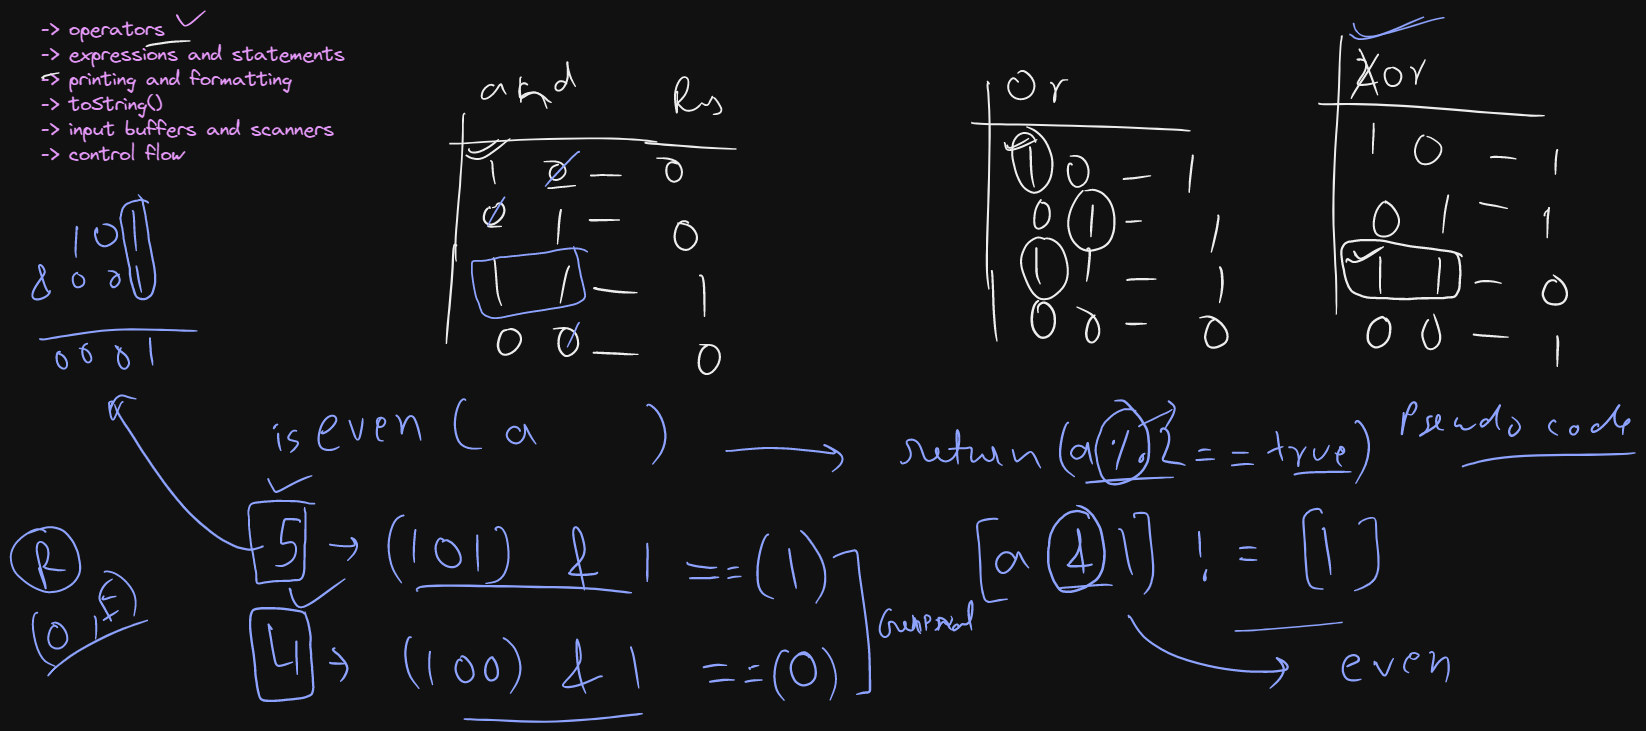 -> operators
-> expressions and statements
-> printing and formatting
-> toString()
-> input buffers and scanners
-> control flow
and Res
1 0 – 0
0 1 – 0
1 1 – 1
0 0 – 0
Or
1 0 – 1
0 1 – 1
1 1 – 1
0 0 – 0
Xor
1 0 – 1
0 1 – 1
1 1 – 0
0 0 – 1
1 0 1
& 0 0 1
0 0 0 1
is even ( a )
return (a % 2 == true) Pseudo code
5 → (101) & 1 == (1)
4 → (100) & 1 == (0)
General
[a & 1] != [1]
even
R
(0, E)